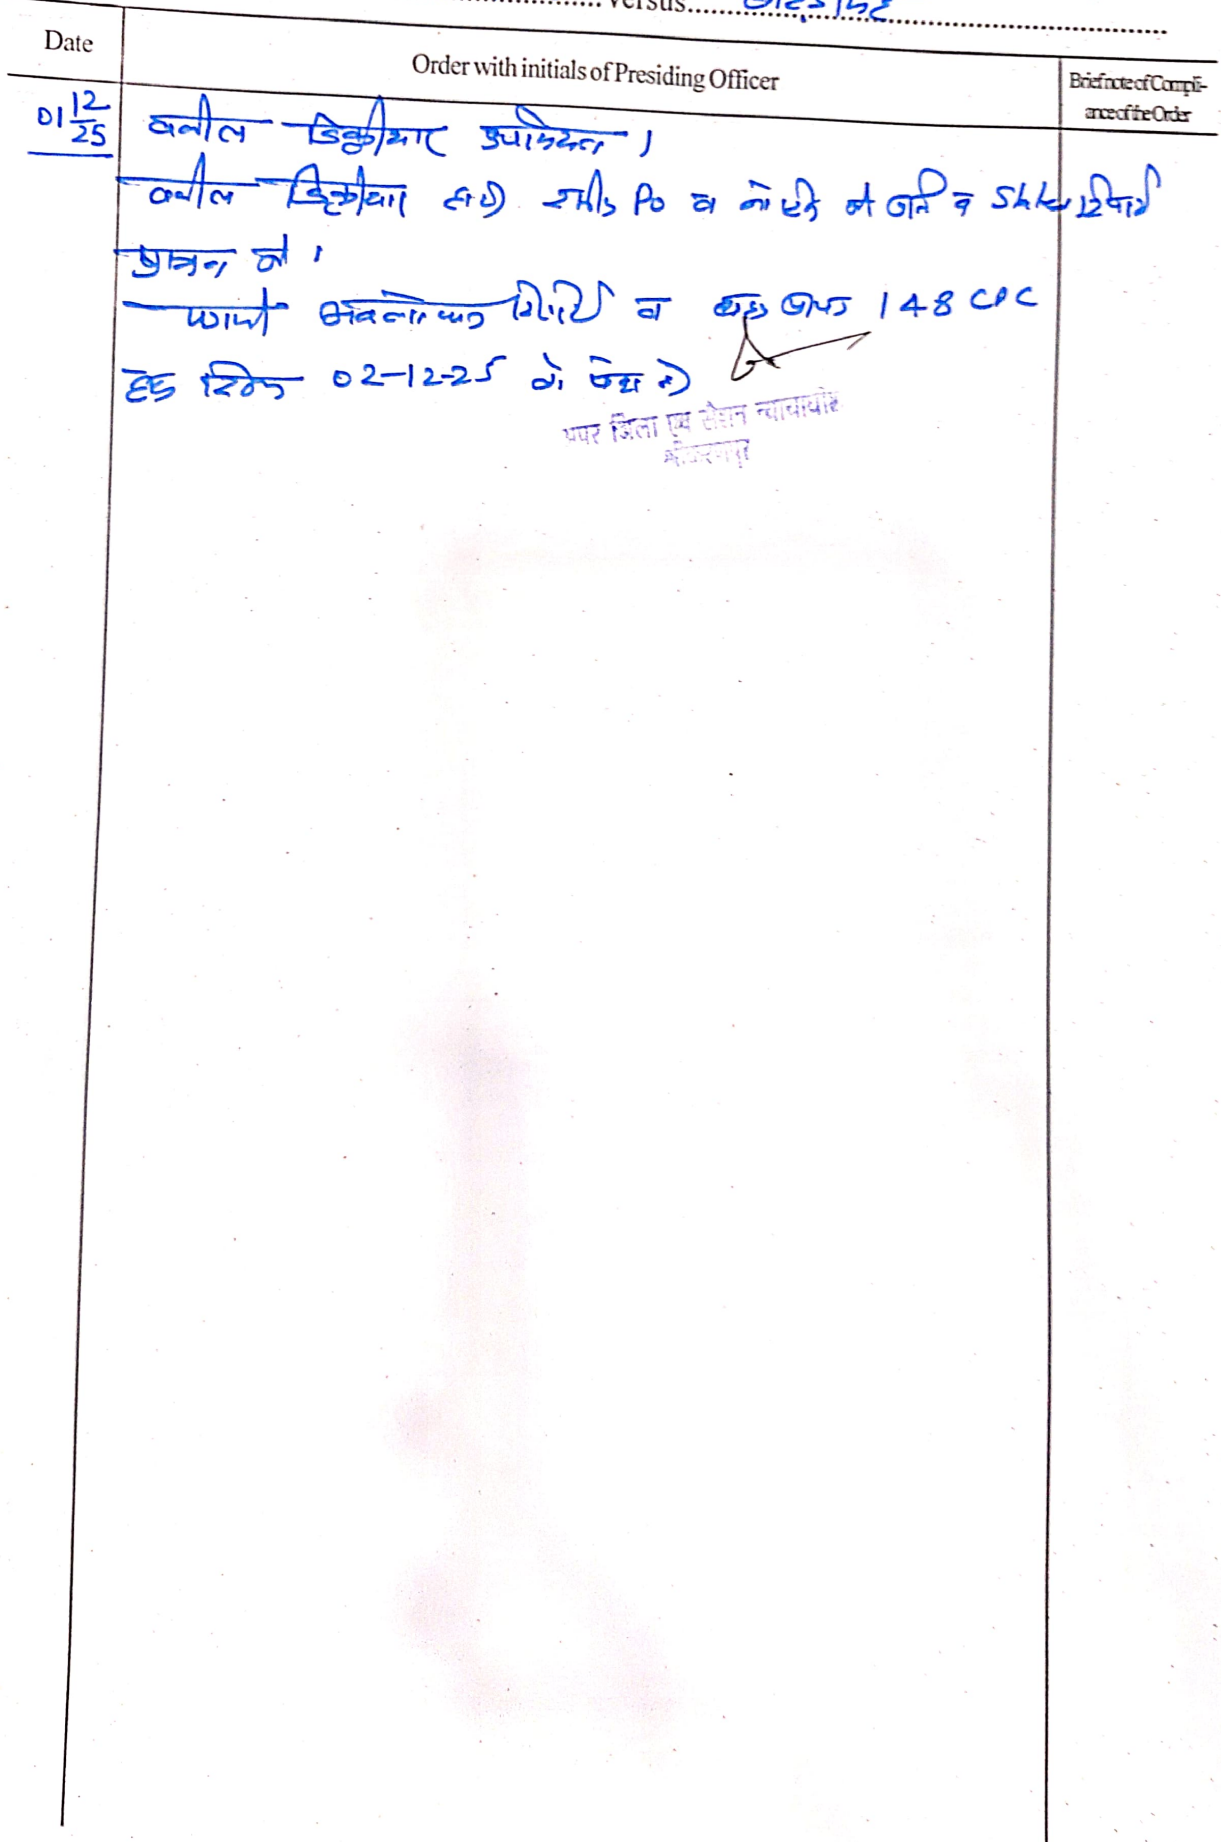 versus
Date
Order with initials of Presiding Officer
Brief note of Compli-
ance of the Order
01 12
25
वकील डिक्रीदार उपस्थित ।
वकील डिक्रीदार द्वारा रसीद PO व की प्रति व रिपोर्ट
प्रस्तुत की ।
वास्ते अवलोकन रिपोर्ट व बहस 148 CPC
हेतु दिनांक 02-12-25 को पेश हो
अपर जिला एवं सेशन न्यायाधीश
श्रीकरणपुर